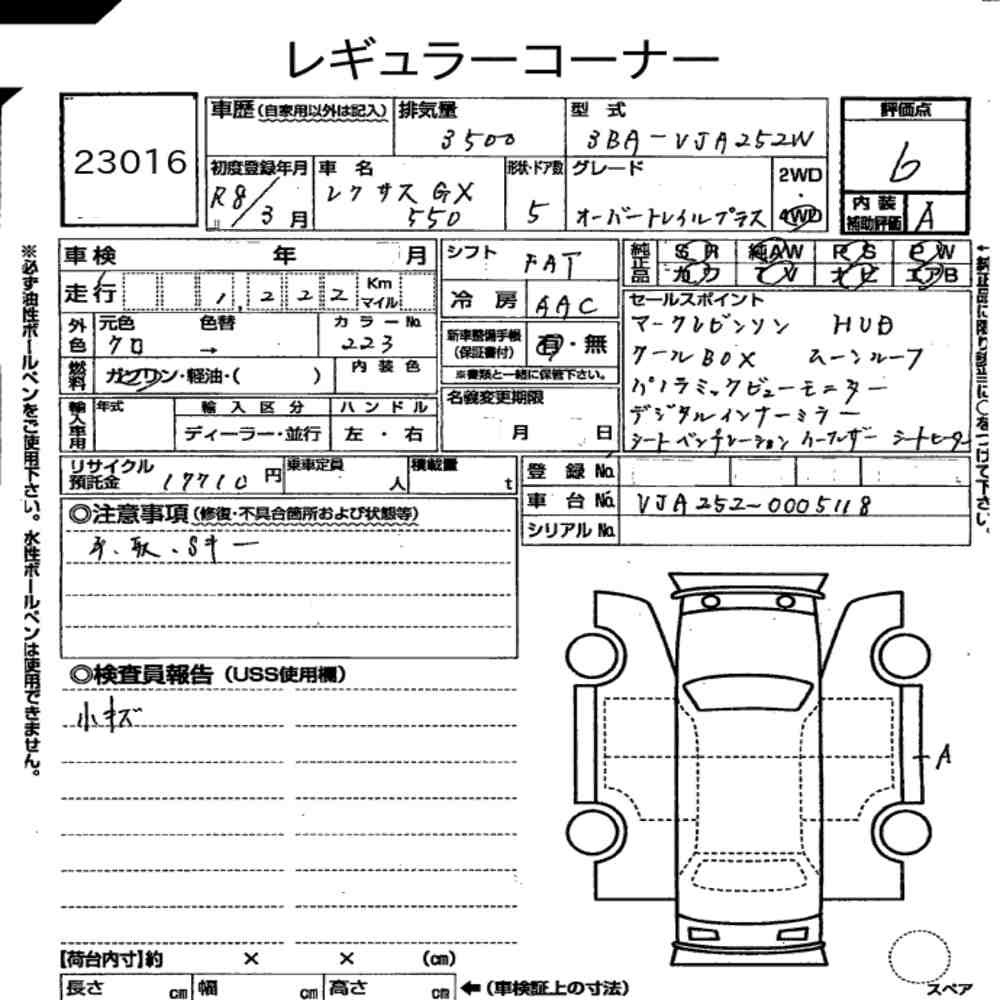 レギュラーコーナー
23016
車歴(自家用以外は記入)
排気量
3500
型式
3BA-VJA252W
評価点
6
内装補助評価
A
初度登録年月
R8/3月
車名
レクサス GX
550
形状・ドア数
5
グレード
オーバートレイルプラス
2WD
・
4WD
車検 年 月
走行
1,222
Km
マイル
シフト
FAT
冷房
AAC
純正品
SR 純AW PS PW
カワ TV ナビ エアB
外色
元色 色替
クロ →
カラーNo.
223
燃料
ガソリン・軽油・( )
内装色
新車整備手帳
(保証書付)
有・無
※書類と一緒に保管下さい。
セールスポイント
マークレビンソン HUD
クールBOX ムーンルーフ
パノラミックビューモニター
デジタルインナーミラー
シートベンチレーション シートヒーター
輸入車用
年式
輸入区分
ディーラー・並行
ハンドル
左・右
名義変更期限
月 日
リサイクル預託金
17710円
乗車定員
人
積載量
t
登録No.
車台No.
VJA252-0005118
シリアルNo.
◎注意事項(修復・不具合箇所および状態等)
手、取、Sキー
◎検査員報告(USS使用欄)
小キズ
A
【荷台内寸】約 × × (cm)
長さ cm 幅 cm 高さ cm ←(車検証上の寸法)
スペア
※必ず油性ボールペンをご使用下さい。水性ボールペンは使用できません。
←純正品に限り記入欄に○をつけて下さい。